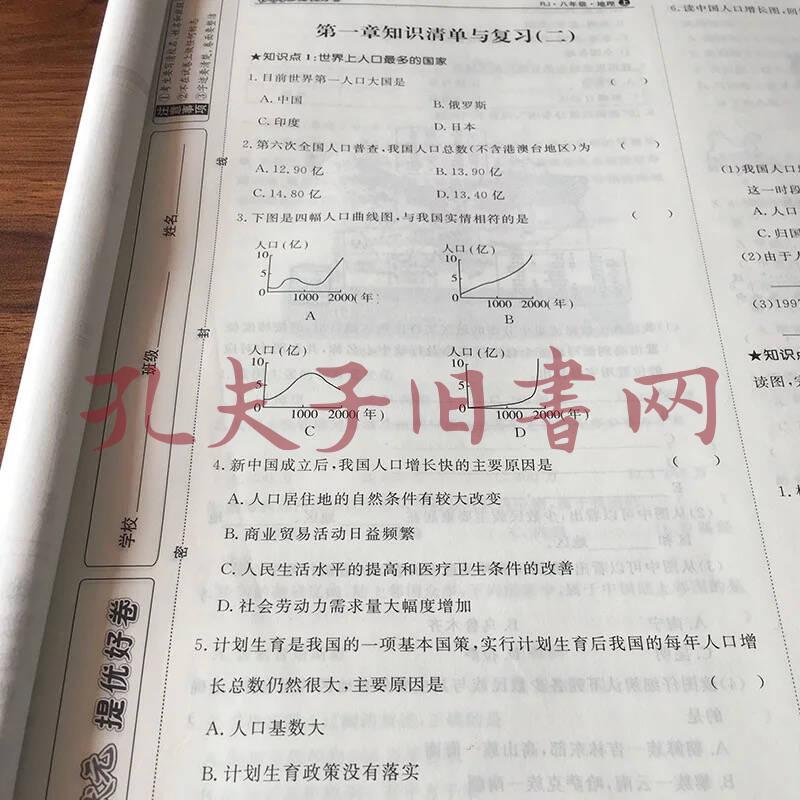 RJ·八年级·地理 上
第一章知识清单与复习(二)
★知识点1:世界上人口最多的国家
1.目前世界第一人口大国是 ( )
A.中国 B.俄罗斯
C.印度 D.日本
2.第六次全国人口普查,我国人口总数(不含港澳台地区)为 ( )
A.12.90亿 B.13.90亿
C.14.80亿 D.13.40亿
3.下图是四幅人口曲线图,与我国实情相符的是 ( )
人口(亿) 人口(亿)
10 10
5 5
0 1000 2000(年) 0 1000 2000(年)
A B
人口(亿) 人口(亿)
10 10
5 5
0 1000 2000(年) 0 1000 2000(年)
C D
4.新中国成立后,我国人口增长快的主要原因是 ( )
A.人口居住地的自然条件有较大改变
B.商业贸易活动日益频繁
C.人民生活水平的提高和医疗卫生条件的改善
D.社会劳动力需求量大幅度增加
5.计划生育是我国的一项基本国策,实行计划生育后我国的每年人口增
长总数仍然很大,主要原因是 ( )
A.人口基数大
B.计划生育政策没有落实
6.读中国人口增长图,回
(1)我国人口
这一时段
A.人口
C.归国
(2)由于人
(3)199
★知识点
读图,完
1.
注意事项
①考生要写清校名、姓名和班级
②不在试卷上做任何标志
③字迹要清楚,卷面要整洁
姓名
班级
学校
线
封
密
提优好卷
孔夫子旧书网